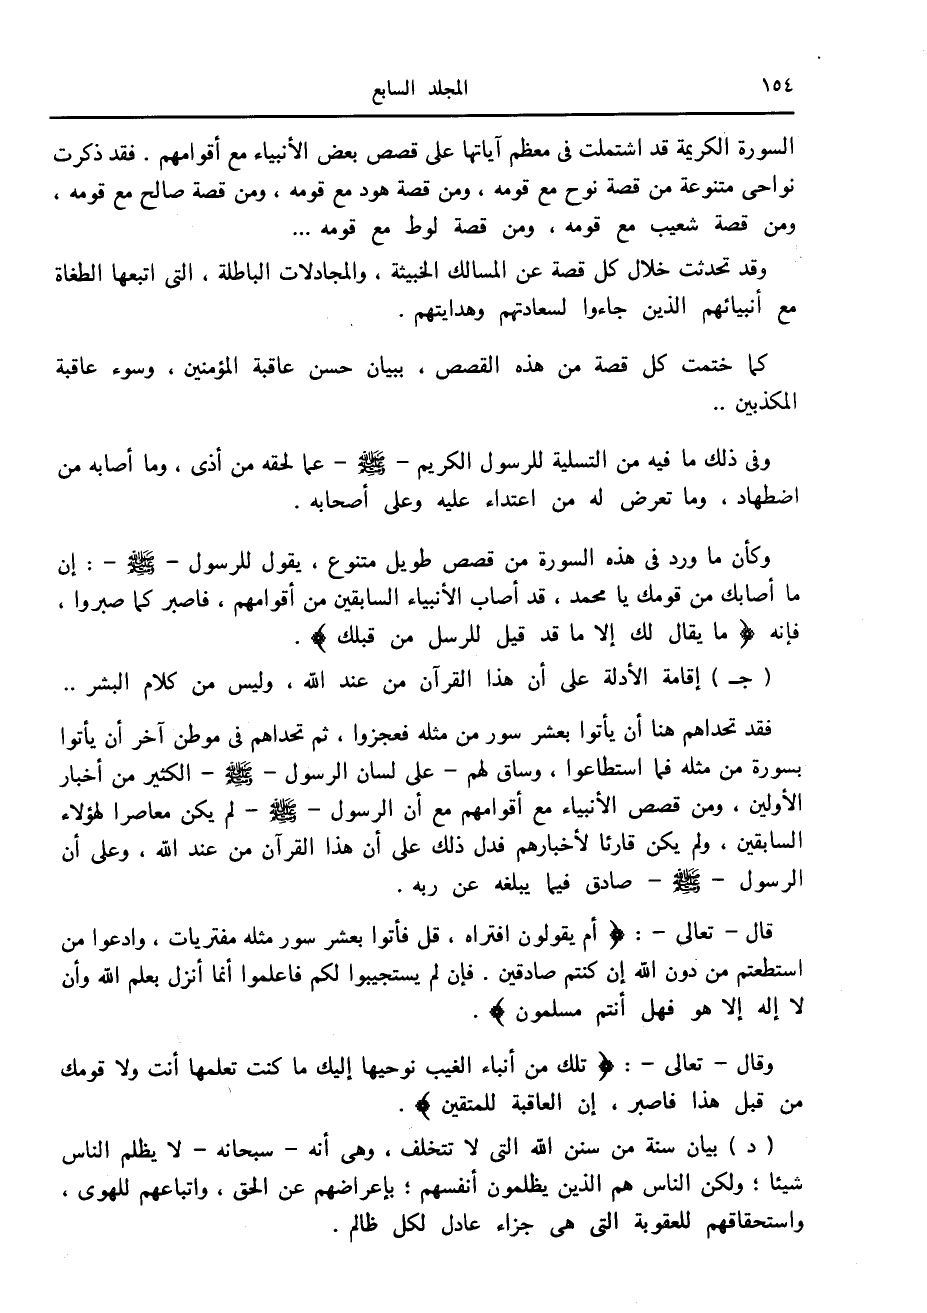 ١٥٤
المجلد السابع
السورة الكريمة قد اشتملت فى معظم آياتها على قصص بعض الأنبياء مع أقوامهم . فقد ذكرت
نواحى متنوعة من قصة نوح مع قومه ، ومن قصة هود مع قومه ، ومن قصة صالح مع قومه ،
ومن قصة شعيب مع قومه ، ومن قصة لوط مع قومه ...
وقد تحدثت خلال كل قصة عن المسالك الخبيثة ، والمجادلات الباطلة ، التى اتبعها الطغاة
مع أنبيائهم الذين جاءوا لسعادتهم وهدايتهم .
كما ختمت كل قصة من هذه القصص ، ببيان حسن عاقبة المؤمنين ، وسوء عاقبة
المكذبين ..
وفى ذلك ما فيه من التسلية للرسول الكريم – ﷺ – عما لحقه من أذى ، وما أصابه من
اضطهاد ، وما تعرض له من اعتداء عليه وعلى أصحابه .
وكأن ما ورد فى هذه السورة من قصص طويل متنوع ، يقول للرسول – ﷺ – : إن
ما أصابك من قومك يا محمد ، قد أصاب الأنبياء السابقين من أقوامهم ، فاصبر كما صبروا ،
فإنه ﴿ ما يقال لك إلا ما قد قيل للرسل من قبلك ﴾ .
( جـ ) إقامة الأدلة على أن هذا القرآن من عند الله ، وليس من كلام البشر ..
فقد تحداهم هنا أن يأتوا بعشر سور من مثله فعجزوا ، ثم تحداهم فى موطن آخر أن يأتوا
بسورة من مثله فما استطاعوا ، وساق لهم – على لسان الرسول – ﷺ – الكثير من أخبار
الأولين ، ومن قصص الأنبياء مع أقوامهم مع أن الرسول – ﷺ – لم يكن معاصرا لهؤلاء
السابقين ، ولم يكن قارئا لأخبارهم فدل ذلك على أن هذا القرآن من عند الله ، وعلى أن
الرسول – ﷺ – صادق فيما يبلغه عن ربه .
قال – تعالى – : ﴿ أم يقولون افتراه ، قل فأتوا بعشر سور مثله مفتريات ، وادعوا من
استطعتم من دون الله إن كنتم صادقين . فإن لم يستجيبوا لكم فاعلموا أنما أنزل بعلم الله وأن
لا إله إلا هو فهل أنتم مسلمون ﴾ .
وقال – تعالى – : ﴿ تلك من أنباء الغيب نوحيها إليك ما كنت تعلمها أنت ولا قومك
من قبل هذا فاصبر ، إن العاقبة للمتقين ﴾ .
( د ) بيان سنة من سنن الله التى لا تتخلف ، وهى أنه – سبحانه – لا يظلم الناس
شيئا ؛ ولكن الناس هم الذين يظلمون أنفسهم ؛ بإعراضهم عن الحق ، واتباعهم للهوى ،
واستحقاقهم للعقوبة التى هى جزاء عادل لكل ظالم .